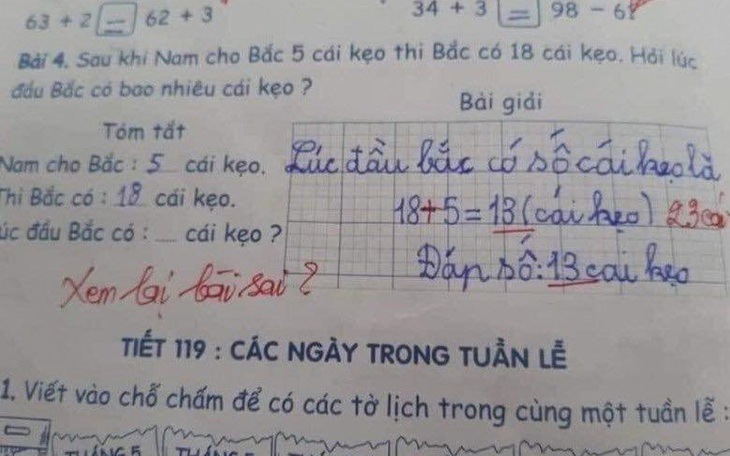 63 + 2 = 62 + 3
34 + 3 = 98 - 61
Bài 4. Sau khi Nam cho Bắc 5 cái kẹo thì Bắc có 18 cái kẹo. Hỏi lúc
đầu Bắc có bao nhiêu cái kẹo ?
Bài giải
Tóm tắt
Nam cho Bắc : 5 cái kẹo.
Lúc đầu bắc có số cái kẹo là
Thì Bắc có : 18 cái kẹo.
18+5 = 13 (cái kẹo) 23 cái
úc đầu Bắc có : .... cái kẹo ?
Đáp số: 13 cai kẹo
Xem lại bài sai ?
TIẾT 119 : CÁC NGÀY TRONG TUẦN LỄ
1. Viết vào chỗ chấm để có các tờ lịch trong cùng một tuần lễ :
THÁNG 5